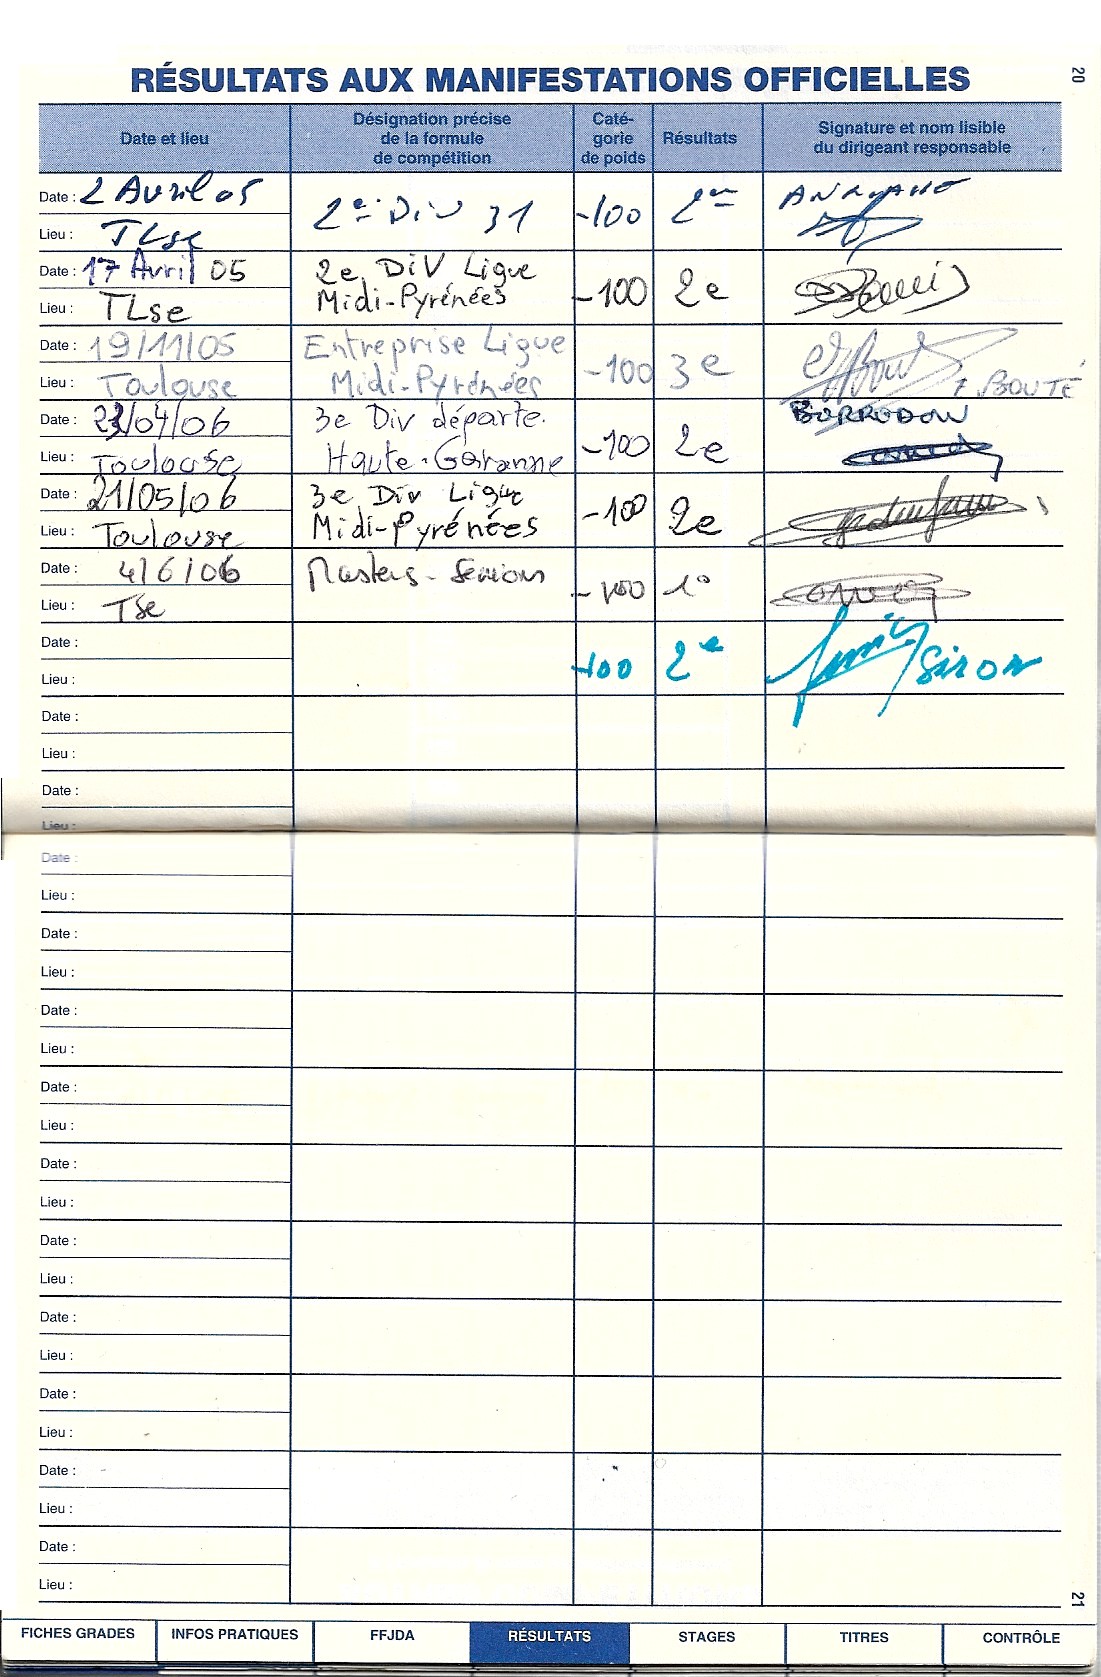 20
RÉSULTATS AUX MANIFESTATIONS OFFICIELLES
Date et lieu
Désignation précise
de la formule
de compétition
Caté-
gorie
de poids
Résultats
Signature et nom lisible
du dirigeant responsable
Date : 2 Avril 05
Lieu : TLse
2e Div 31
-100
2e
Date : 17 Avril 05
Lieu : TLse
2e DiV Ligue
Midi-Pyrénées
-100
2e
Date : 19/11/05
Lieu : Toulouse
Entreprise Ligue
Midi-Pyrénées
-100
3e
BOUTÉ
Date : 23/04/06
Lieu : Toulouse
3e Div départe.
Haute-Garonne
-100
2e
Date : 21/05/06
Lieu : Toulouse
3e Div Ligue
Midi-Pyrénées
-100
2e
Date : 4/6/06
Lieu : Tse
Masters - Seniors
-100
1°
Date :
Lieu :
-100
2e
SIRON
Date :
Lieu :
Date :
Lieu :
Date :
Lieu :
Date :
Lieu :
Date :
Lieu :
Date :
Lieu :
Date :
Lieu :
Date :
Lieu :
Date :
Lieu :
Date :
Lieu :
Date :
Lieu :
Date :
Lieu :
21
FICHES GRADES
INFOS PRATIQUES
FFJDA
RÉSULTATS
STAGES
TITRES
CONTRÔLE